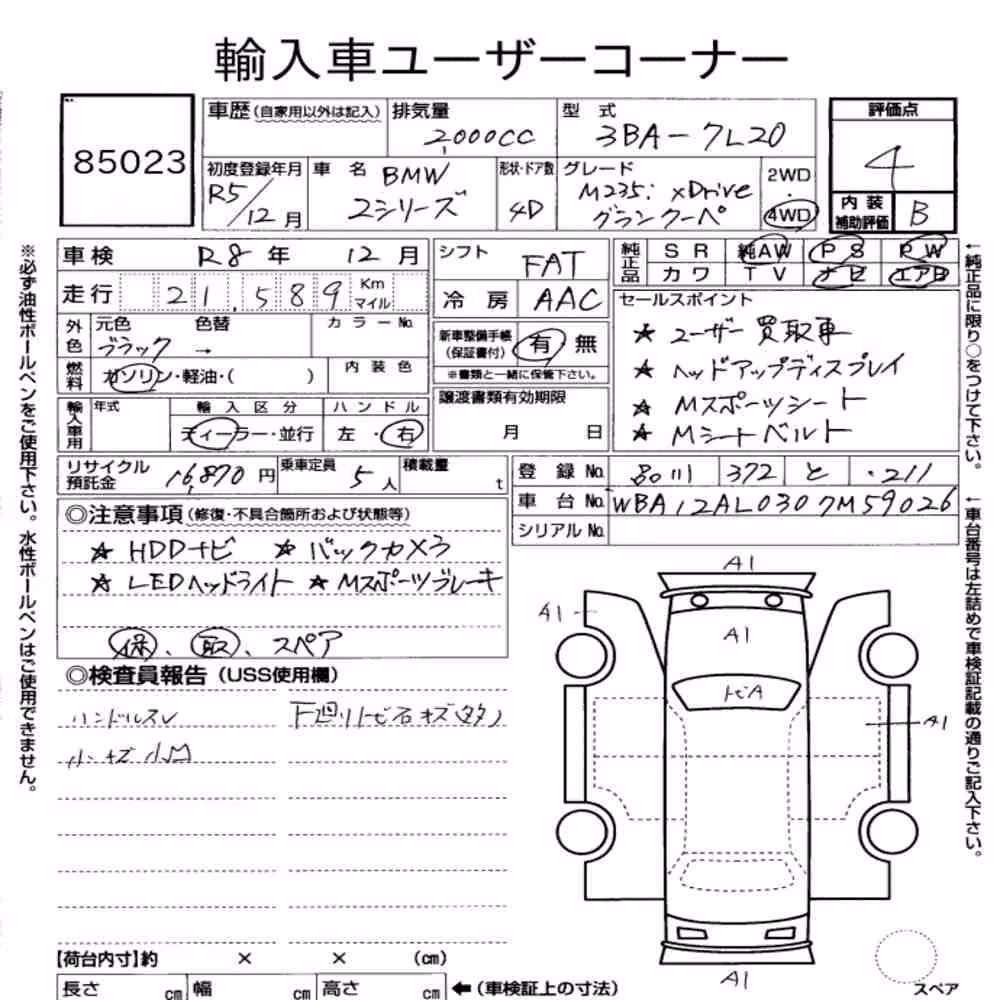 輸入車ユーザーコーナー
85023
車歴(自家用以外は記入) 排気量 2,000CC 型式 3BA-7L20
評価点 4
初度登録年月 R5/12月 車名 BMW 2シリーズ 形状・ドア数 4D グレード M235i xDrive グランクーペ 2WD・4WD
内装補助評価 B
車検 R8年 12月 シフト FAT
純正品 SR 純AW PS PW
カワ TV ナビ エアB
走行 21,589 Km マイル 冷房 AAC
セールスポイント
外色 元色 ブラック → 色替 カラーNo.
新車整備手帳(保証書付) 有 無
※書類と一緒に保管下さい。
★ユーザー買取車
★ヘッドアップディスプレイ
★Mスポーツシート
★Mシートベルト
燃料 ガソリン・軽油・( ) 内装色
譲渡書類有効期限
月 日
輸入車用 年式 輸入区分 ディーラー・並行 ハンドル 左・右
リサイクル預託金 16,870円 乗車定員 5人 積載量 t
登録No. 品川 372 と ・211
車台No. WBA12AL0307M59026
シリアルNo.
◎注意事項(修復・不具合箇所および状態等)
★HDDナビ ★バックカメラ
★LEDヘッドライト ★Mスポーツブレーキ
保、取、スペア
◎検査員報告(USS使用欄)
ハンドルスレ 下廻りトビ石キズ(多)
小キズ 小凹
A1
A1
A1
トビA
A1
A1
スペア
【荷台内寸】約 × × (cm)
長さ cm 幅 cm 高さ cm ←(車検証上の寸法)
※必ず油性ボールペンをご使用下さい。水性ボールペンはご使用できません。
←純正品に限り○をつけて下さい。
←車台番号は左詰めで車検証記載の通りご記入下さい。